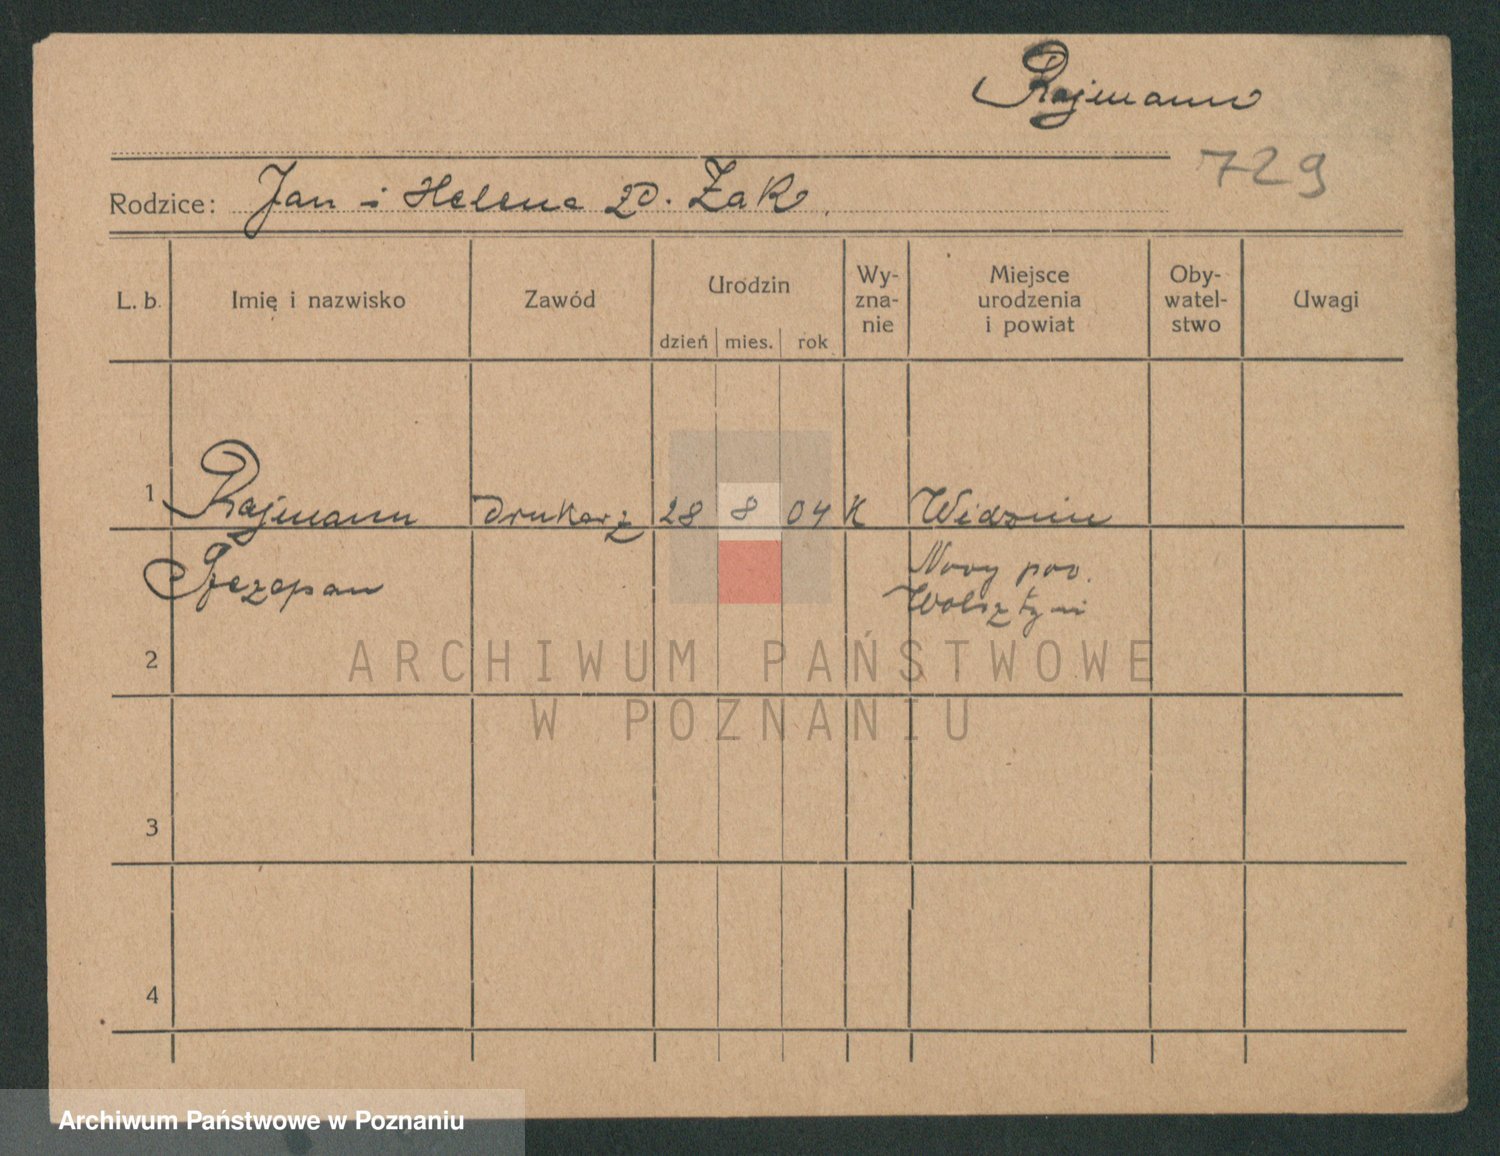 Rajmann
729
Rodzice: Jan i Helena zd. Żak.
L. b. Imię i nazwisko Zawód Urodzin dzień mies. rok Wy-zna-nie Miejsce urodzenia i powiat Oby-watel-stwo Uwagi
1 Rajmann drukarz 28 8 04 K Widzim
Szczepan Nowy pow.
Wolsztyn
2
ARCHIWUM PAŃSTWOWE
W POZNANIU
3
4
Archiwum Państwowe w Poznaniu